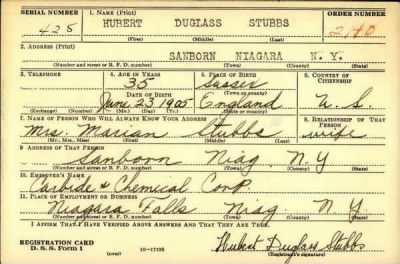 SERIAL NUMBER 1. NAME (Print) ORDER NUMBER
425 HUBERT DUGLASS STUBBS 2140
(First) (Middle) (Last)
2. ADDRESS (Print)
SANBORN NIAGARA N.Y.
(Number and street or R. F. D. number) (Town) (County) (State)
3. TELEPHONE 4. AGE IN YEARS 5. PLACE OF BIRTH 6. COUNTRY OF CITIZENSHIP
35 Sussex
DATE OF BIRTH (Town or county)
June 23 1905 England U.S.
(Exchange) (Number) (Mo.) (Day) (Yr.) (State or country)
7. NAME OF PERSON WHO WILL ALWAYS KNOW YOUR ADDRESS 8. RELATIONSHIP OF THAT PERSON
Mrs. Marian Stubbs wife
(Mr., Mrs., Miss) (First) (Middle) (Last)
9. ADDRESS OF THAT PERSON
Sanborn Niag. N.Y
(Number and street or R. F. D. number) (Town) (County) (State)
10. EMPLOYER'S NAME
Carbide & Chemical Corp.
11. PLACE OF EMPLOYMENT OR BUSINESS
Niagara Falls Niag N.Y.
(Number and street or R. F. D. number) (Town) (County) (State)
I AFFIRM THAT I HAVE VERIFIED ABOVE ANSWERS AND THAT THEY ARE TRUE.
REGISTRATION CARD
D. S. S. Form 1 (over) 16—17105 Hubert Duglass Stubbs
(Registrant's signature)